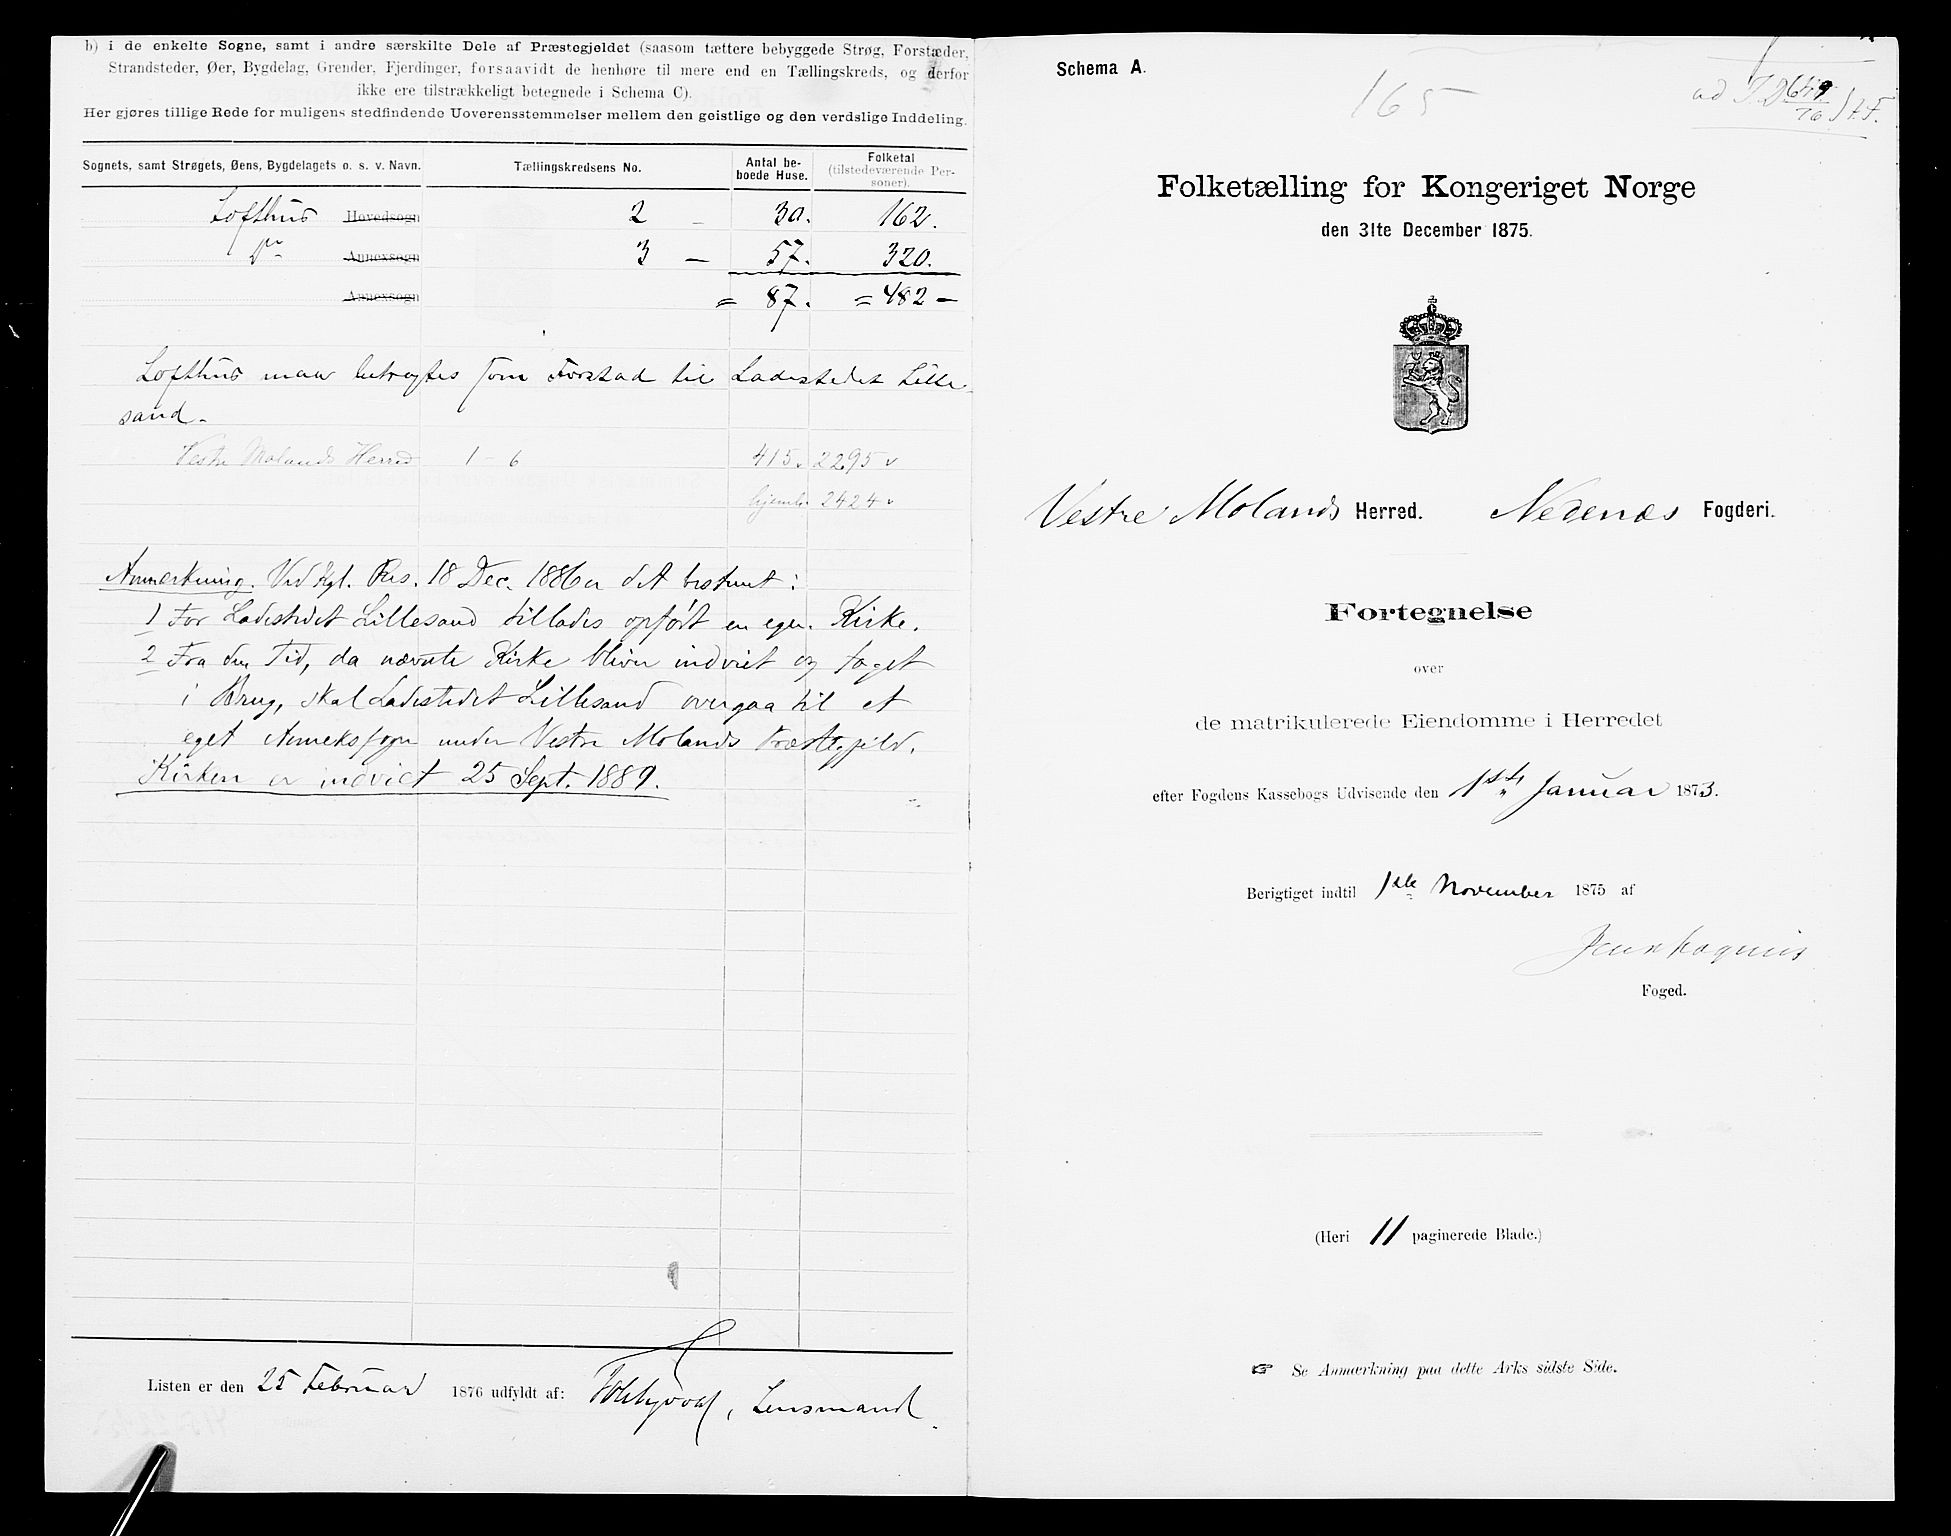 b) i de enkelte Sogne, samt i andre særskilte Dele af Præstegjeldet (saasom tættere bebyggede Strøg, Forstæder,
Strandsteder, Øer, Bygdelag, Grender, Fjerdinger, forsaavidt de henhøre til mere end en Tællingskreds, og derfor
ikke ere tilstrækkeligt betegnede i Schema C).
Her gjøres tillige Rede for muligens stedfindende Uoverensstemmelser mellem den geistlige og den verdslige Inddeling.
Sognets, samt Strøgets, Øens, Bygdelagets o. s. v. Navn. Tællingskredsens No. Antal beboede Huse. Folketal (tilstedeværende Personer).
Lofthus Hovedsogn 2 - 30. 162.
Do Annexsogn 3 - 57. 320.
Annexsogn = 87. = 482 -
Lofthus maa betragtes som Forstad til Ladestedet Lille-
sand.
Vestre Molands Herred 1 - 6 415 2295
hjemb. 2424
Anmærkning. Ved Kgl. Res. 18 Dec. 1886 er det bestemt:
1 For Ladestedet Lillesand tillades opført en egen Kirke.
2 Fra den Tid, da nævnte Kirke bliver indviet og taget
i Brug, skal Ladestedet Lillesand overgaa til et
eget Annekssogn under Vestre Molands Præstegjeld.
Kirken er indviet 25 Sept. 1889.
Listen er den 25 Februar 1876 udfyldt af: Lensmand.
Schema A.
165
ad J.D 649/76 St. F.
Folketælling for Kongeriget Norge
den 31te December 1875.
Vestre Molands Herred. Nedenæs Fogderi.
Fortegnelse
over
de matrikulerede Eiendomme i Herredet
efter Fogdens Kassebogs Udvisende den 1ste Januar 1873.
Berigtiget indtil 1ste November 1875 af
Foged.
(Heri 11 paginerede Blade.)
☞ Se Anmærkning paa dette Arks sidste Side.